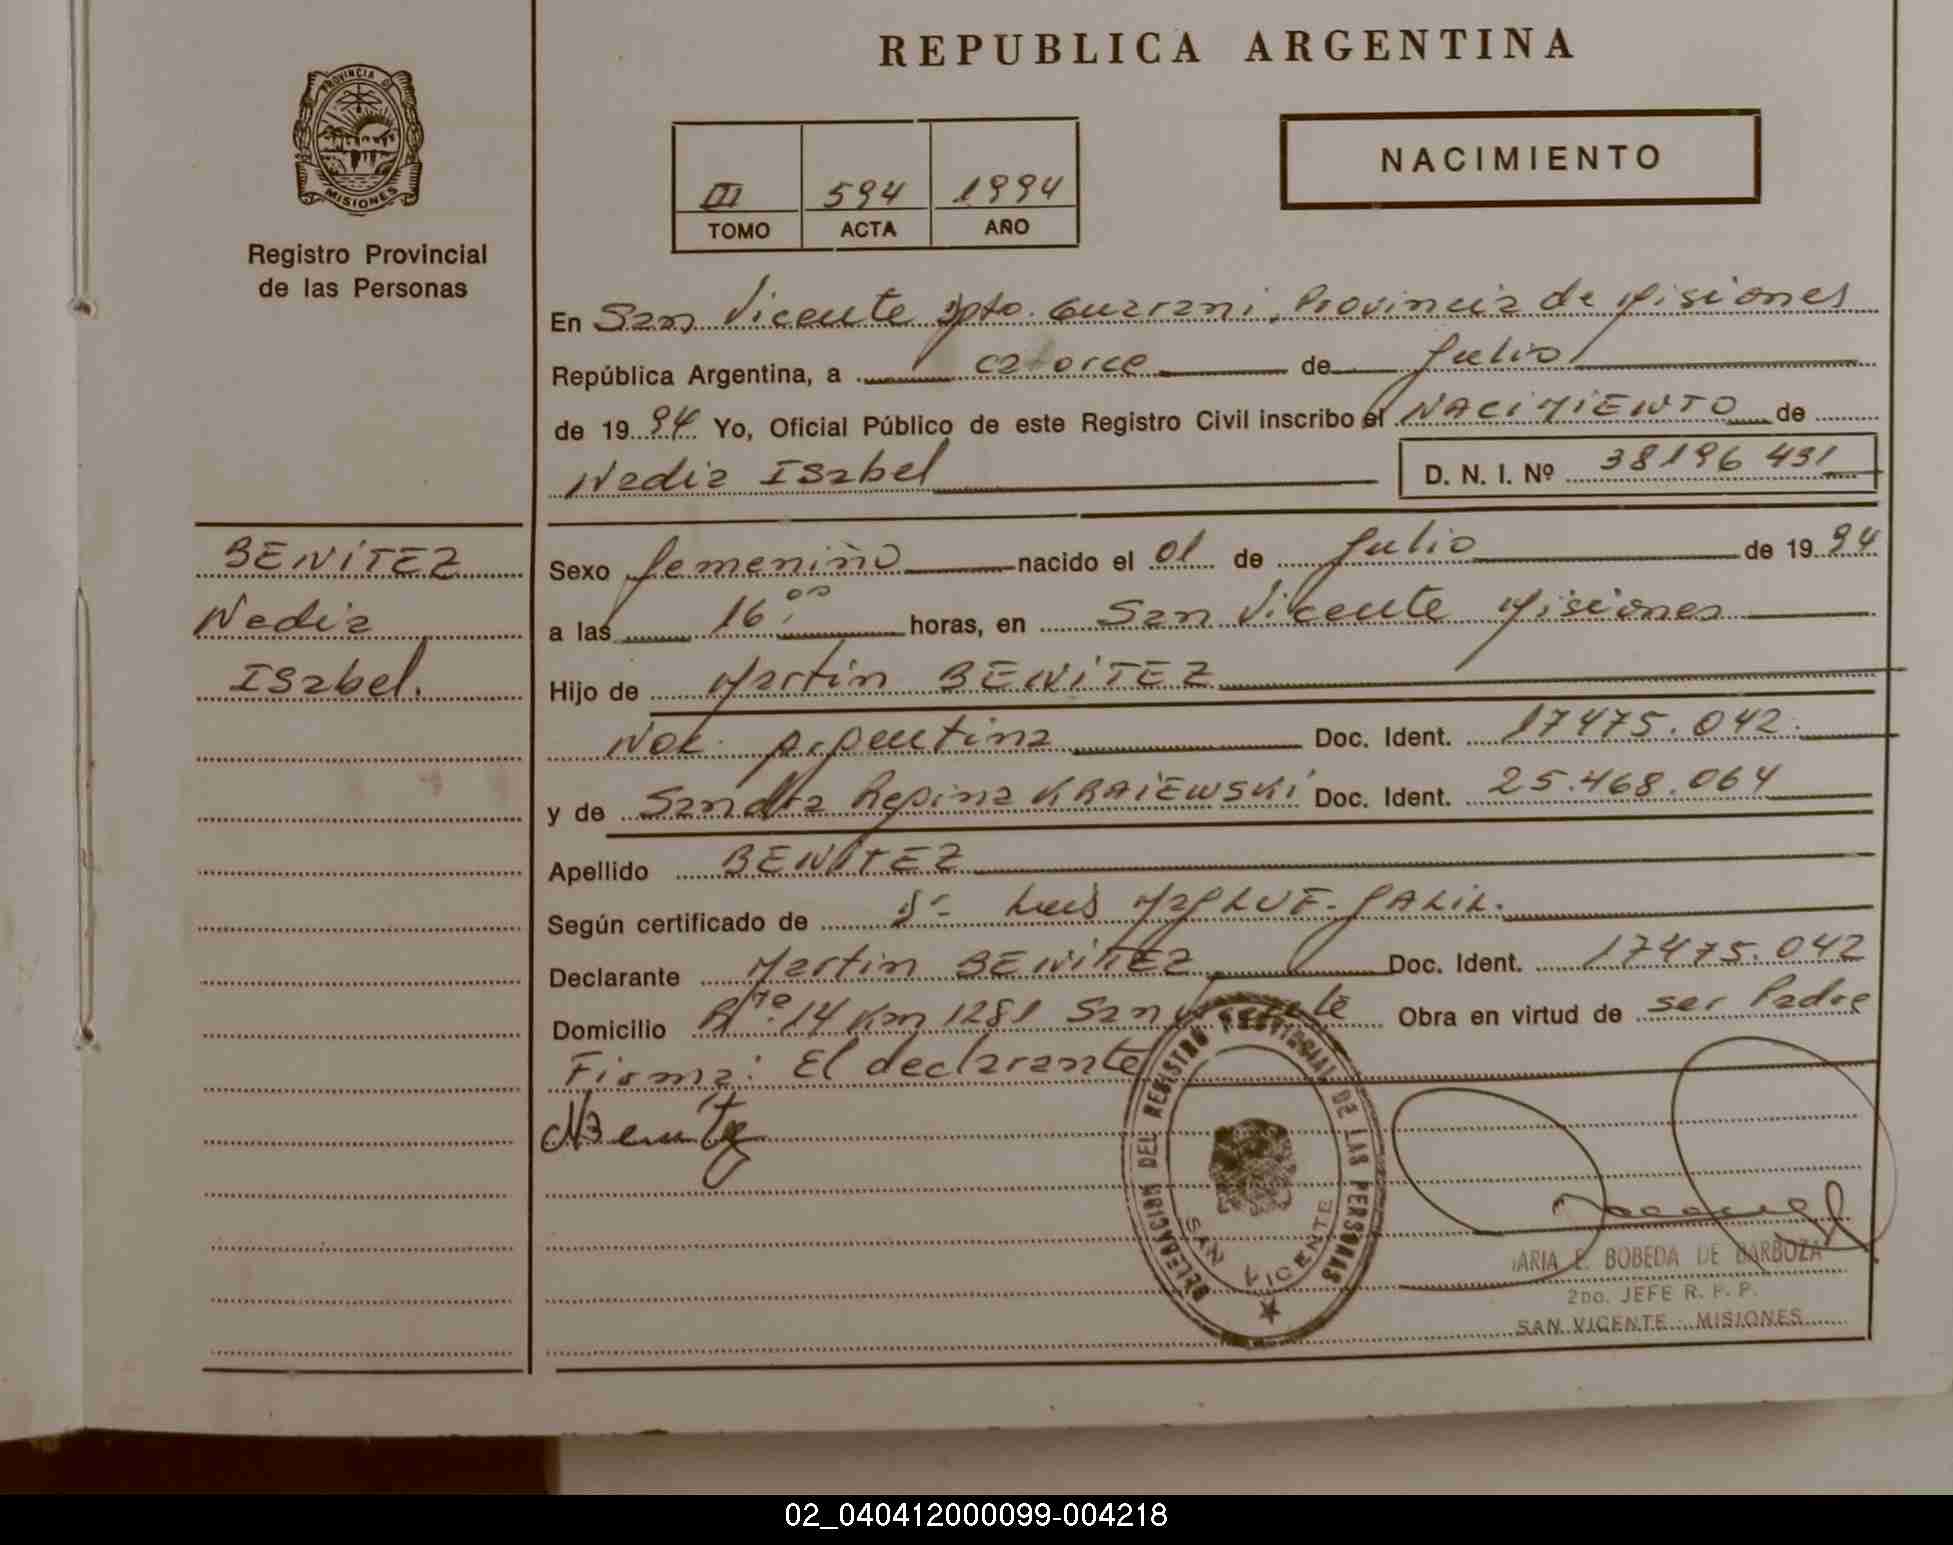 REPUBLICA ARGENTINA
PROVINCIA DE
MISIONES
Registro Provincial
de las Personas
III 594 1994
TOMO ACTA AÑO
NACIMIENTO
En San Vicente Dpto. Guarani, Provincia de Misiones
República Argentina, a catorce de Julio
de 1994 Yo, Oficial Público de este Registro Civil inscribo el NACIMIENTO de
Nadia Isabel D. N. I. Nº 38196 431
BENÍTEZ
Nadia
Isabel.
Sexo femenino nacido el 01 de Julio de 1994
a las 16:00 horas, en San Vicente Misiones
Hijo de Martín BENÍTEZ
Nac. Argentina Doc. Ident. 17475.042.
y de Sandra Regina KRAIEWSKI Doc. Ident. 25.468.064
Apellido BENITEZ
Según certificado de Dr Luis
Declarante Martin BENITEZ Doc. Ident. 17475.042
Domicilio Rta 14 Km 1281 San Vicente Obra en virtud de ser Padre
Firma: El declarante
MBenítez
DELEGACION DEL REGISTRO PROVINCIAL DE LAS PERSONAS
SAN VICENTE
ARIA E. BOBEDA DE BARBOZA
2DO. JEFE R. P. P.
SAN VICENTE - MISIONES
02_040412000099-004218